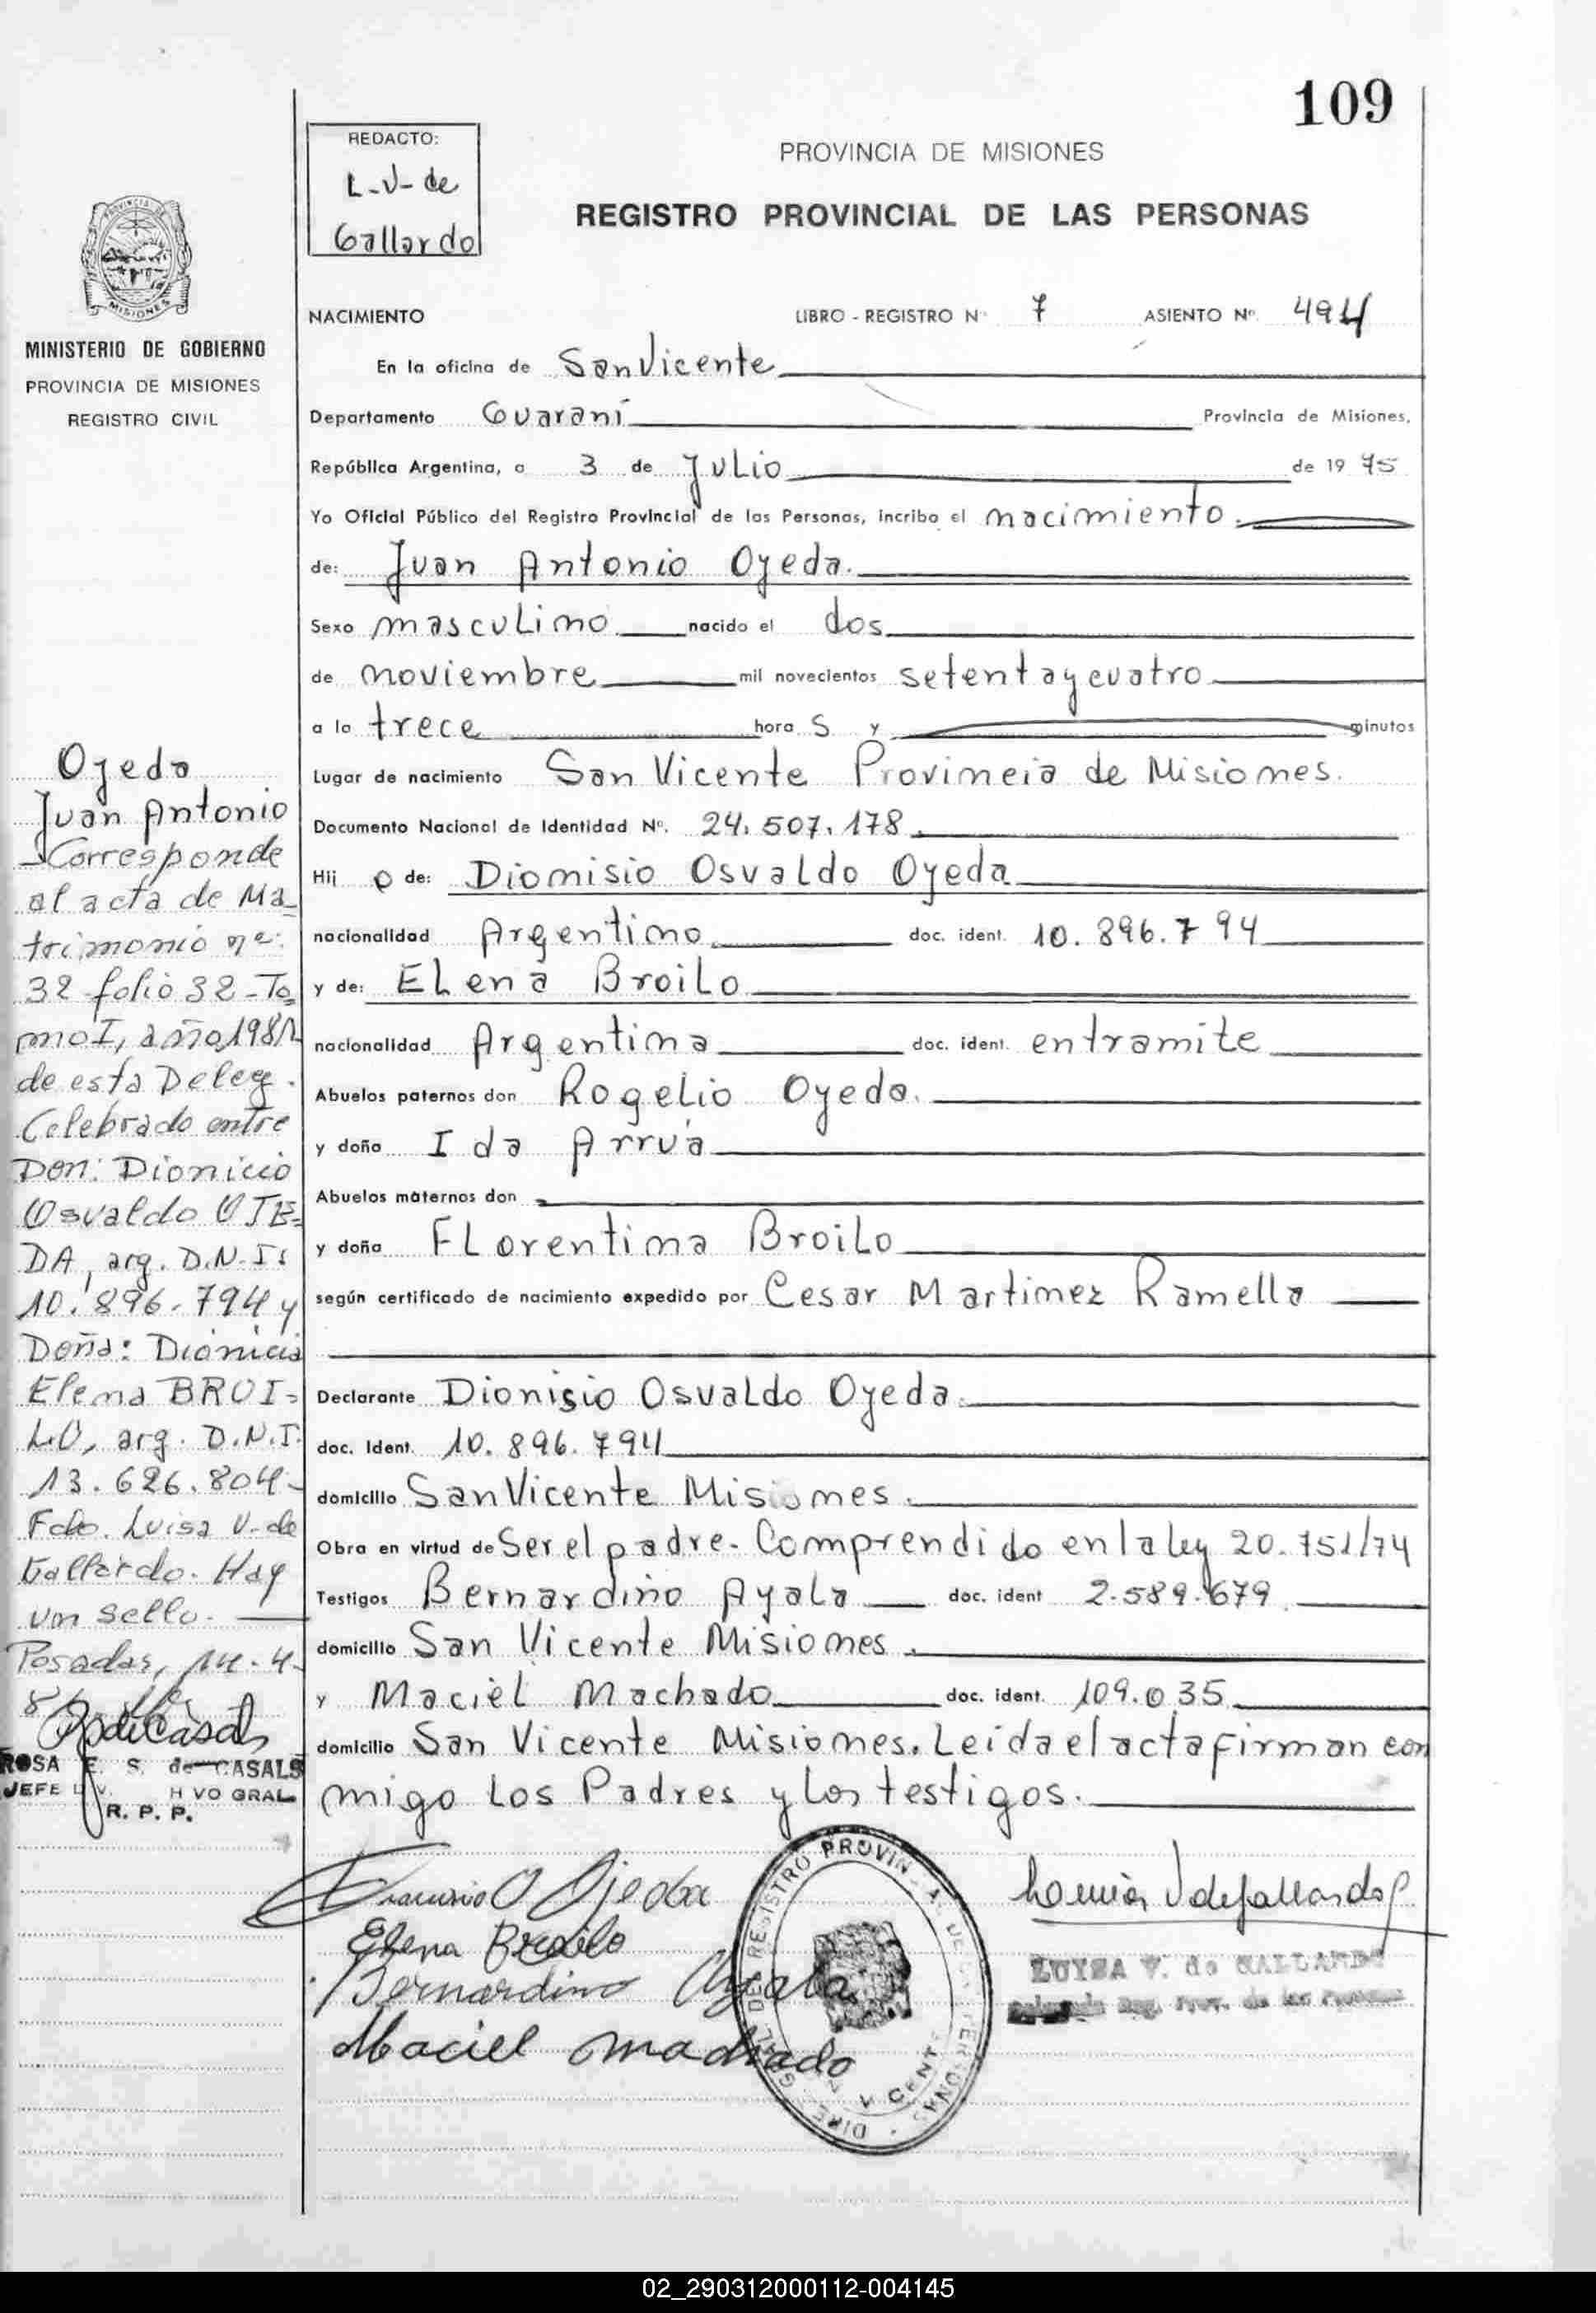 109
REDACTO:
L-V- de
Gallardo
PROVINCIA DE MISIONES
REGISTRO PROVINCIAL DE LAS PERSONAS
MISIONES
MINISTERIO DE GOBIERNO
PROVINCIA DE MISIONES
REGISTRO CIVIL
NACIMIENTO LIBRO - REGISTRO Nº 7 ASIENTO Nº 494
En la oficina de San Vicente
Departamento Guaraní Provincia de Misiones,
República Argentina, a 3 de Julio de 1975
Yo Oficial Público del Registro Provincial de las Personas, incribo el nacimiento.
de: Juan Antonio Ojeda.
Sexo masculino nacido el dos
de noviembre mil novecientos setenta y cuatro
a la trece hora s y minutos
Lugar de nacimiento San Vicente Provincia de Misiones.
Documento Nacional de Identidad Nº. 24.507.178.
Hij o de: Dionisio Osvaldo Ojeda
nacionalidad Argentino. doc. ident. 10.896.794
y de: Elena Broilo
nacionalidad Argentina doc. ident. entramite
Abuelos paternos don Rogelio Ojeda.
y doña Ida Arrúa
Abuelos maternos don
y doña Florentina Broilo
según certificado de nacimiento expedido por Cesar Martinez Ramella
Declarante Dionisio Osvaldo Ojeda.
doc. Ident. 10.896.794
domicilio San Vicente Misiones.
Obra en virtud de Ser el padre. Comprendido en la ley 20.751/74
Testigos Bernardino Ayala doc. ident 2.589.679.
domicilio San Vicente Misiones.
y Maciel Machado doc. ident. 109.035
domicilio San Vicente Misiones. Leida el acta firman con
migo los Padres y los testigos.
Ojeda
Juan Antonio
Corresponde
al acta de Ma-
trimonio nº:
32 folio 32-To
mo I, año 1981
de esta Deleg.
Celebrado entre
Don: Dionicio
Osvaldo OJE=
DA, arg. D.N.I:
10.896.794 y
Doña: Dionicia
Elena BROI=
LO, arg. D.N.I.
13.626.804-
Fdo. Luisa V. de
Gallardo. Hay
un sello.
Posadas, 14-4-
ROSA E. S. de CASALS
R. P. P.
O Ojeda
Elena Broilo
Bernardino Ayala
Maciel Machado
LUISA V. de GALLARDO
02_290312000112-004145